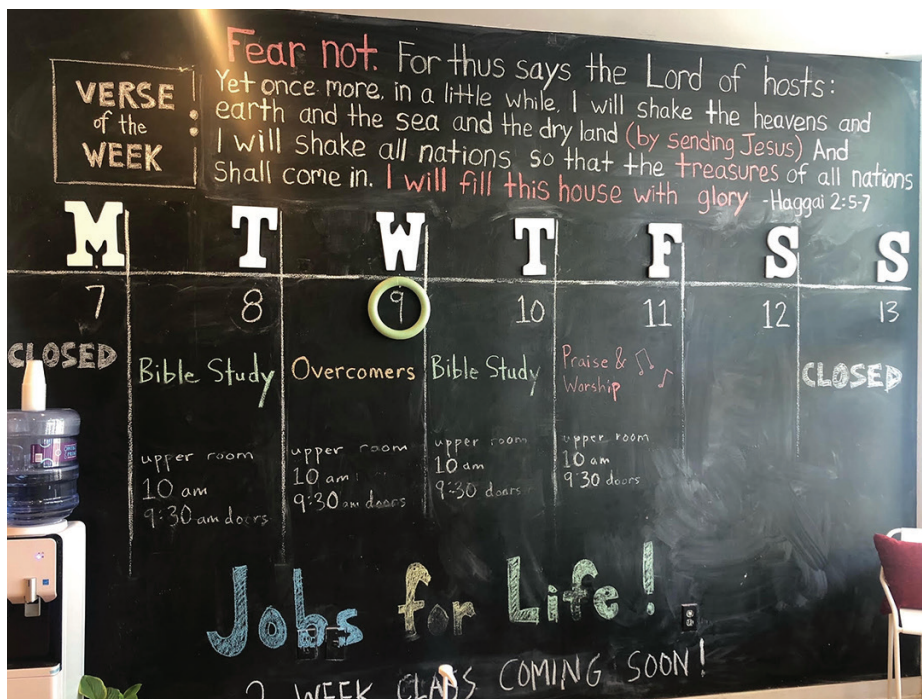 VERSE
of the
WEEK
:
Fear not. For thus says the Lord of hosts:
Yet once more, in a little while, I will shake the heavens and
earth and the sea and the dry land (by sending Jesus) And
I will shake all nations so that the treasures of all nations
shall come in. I will fill this house with glory -Haggai 2:5-7
M T W T F S S
7 8 9 10 11 12 13
CLOSED
Bible Study
upper room
10 am
9:30 am doors
Overcomers
upper room
10 am
9:30 am doors
Bible Study
upper room
10 am
9:30 doors
Praise &
Worship
upper room
10 am
9:30 doors
CLOSED
Jobs for Life!
WEEK CLASS COMING SOON!